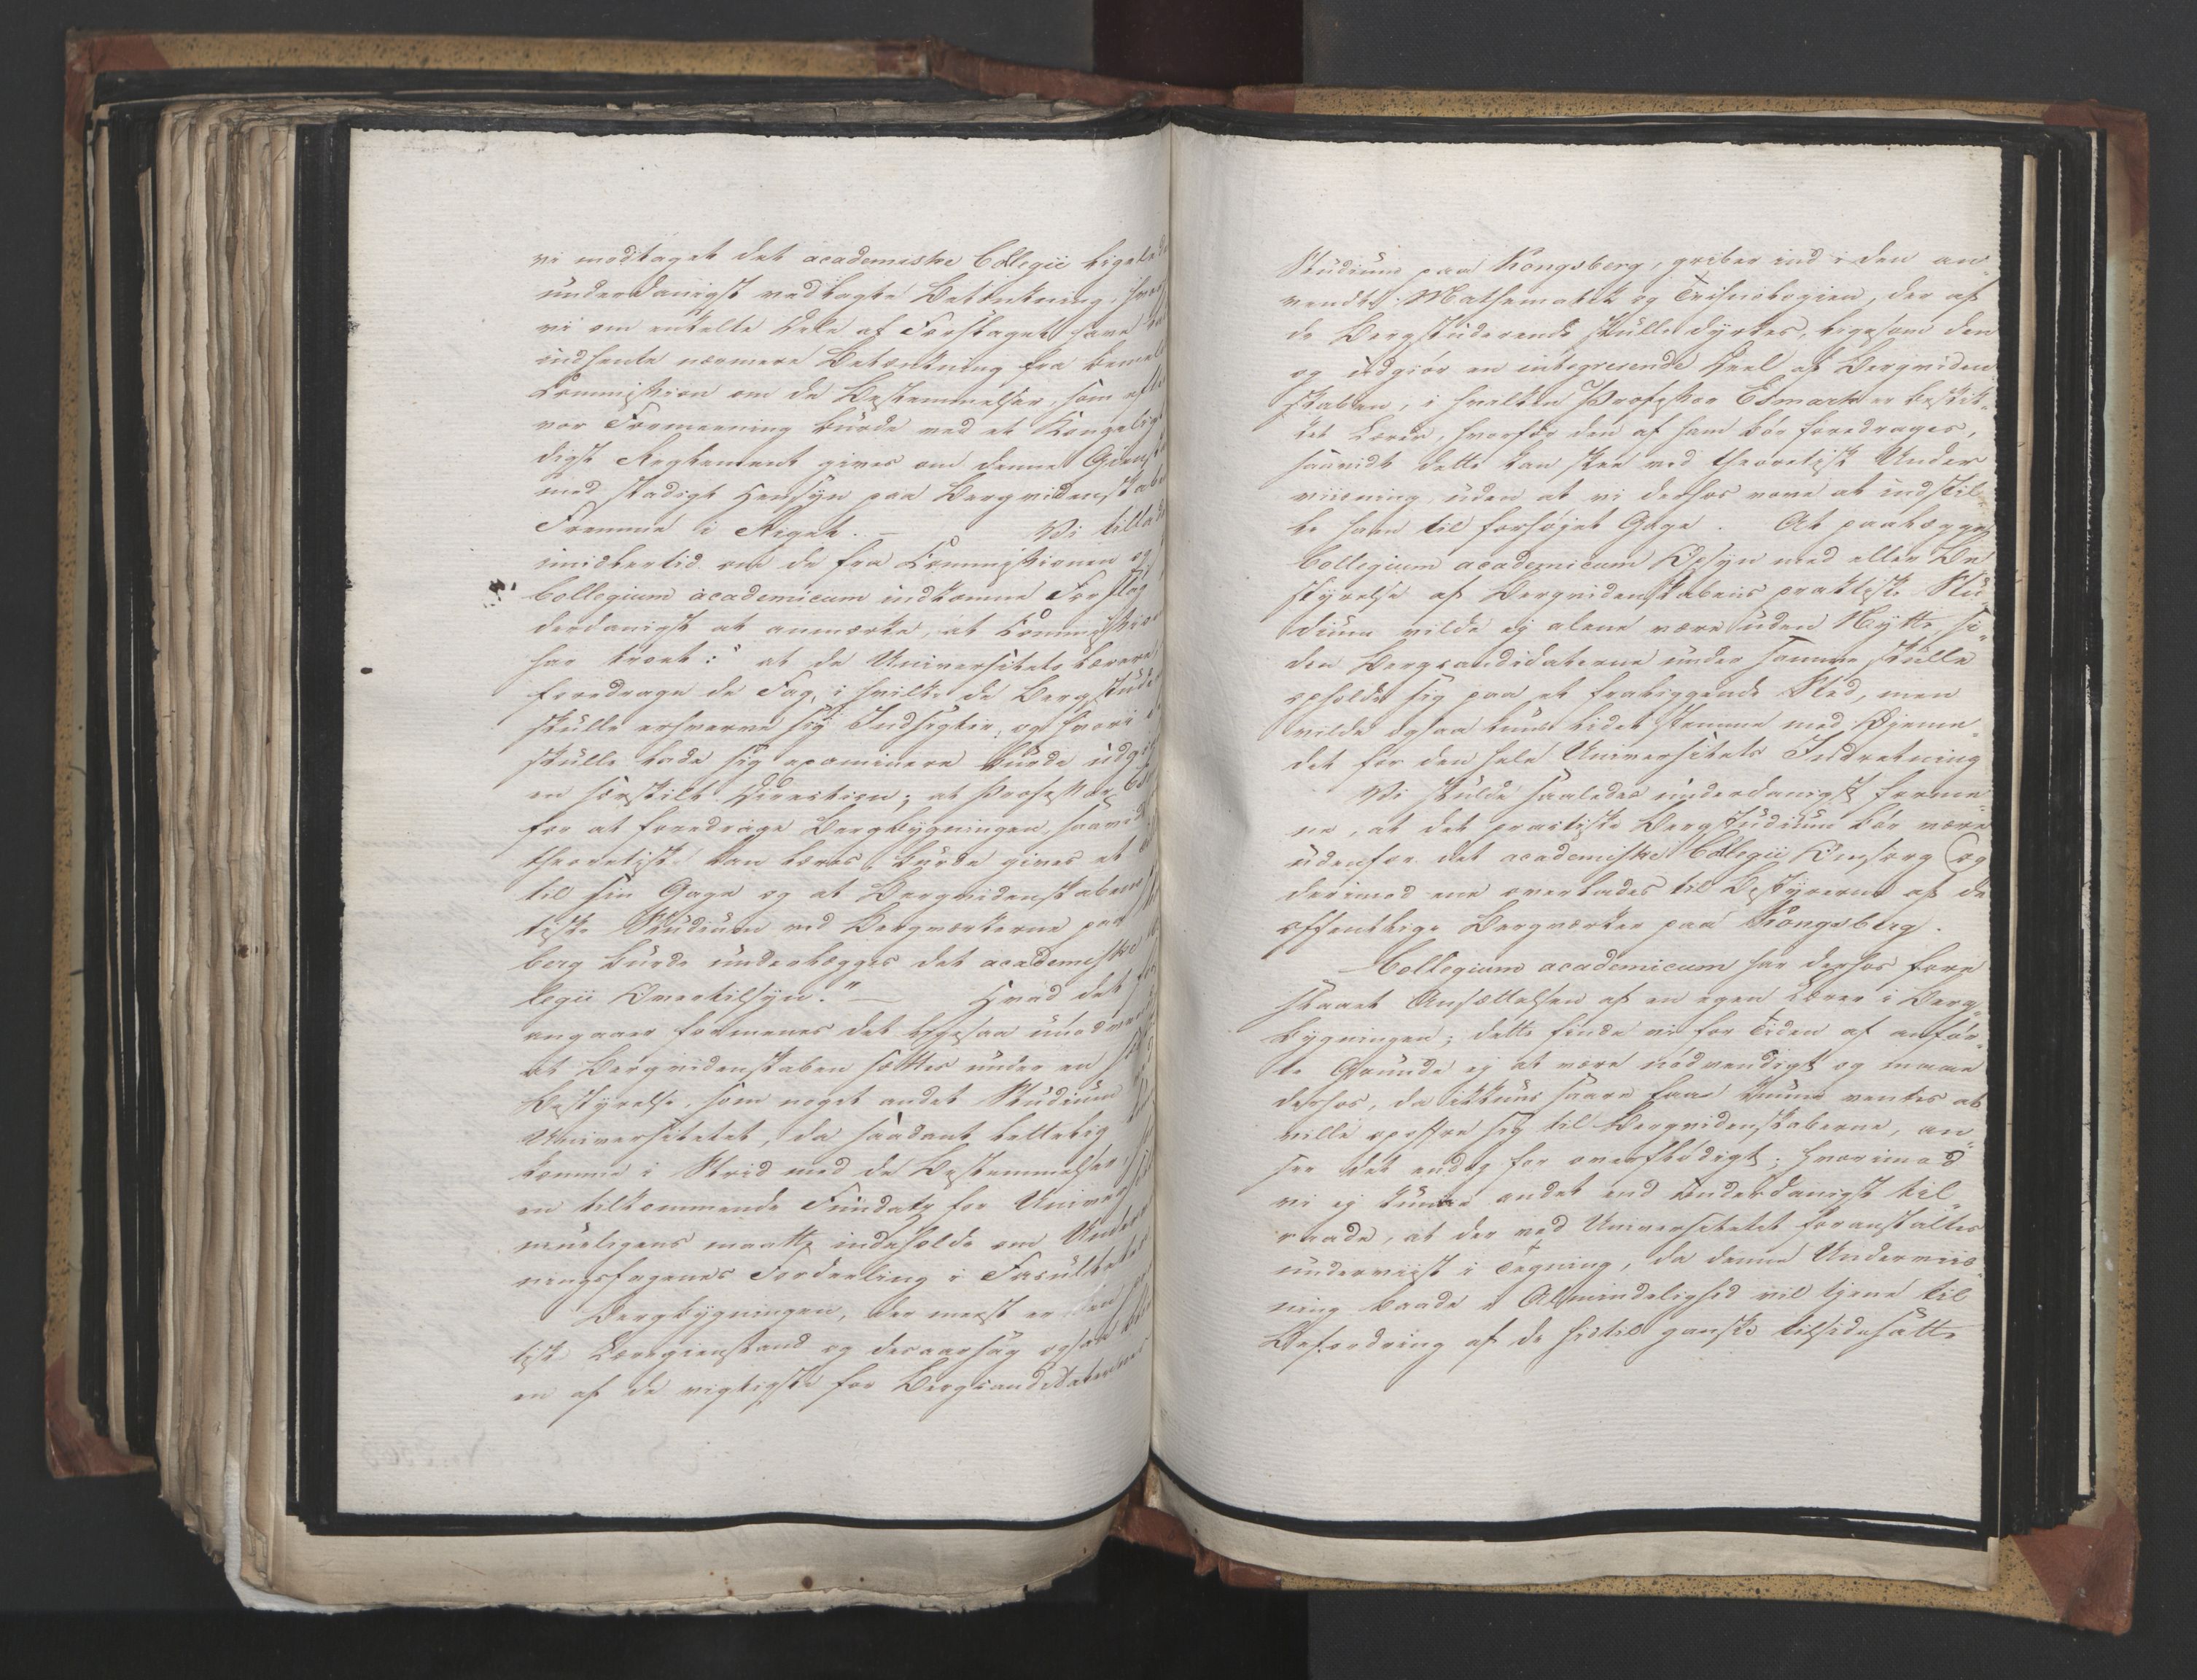 vi modtaget det academiske Collegii ligele
underdanigst vedlagte Betænkning, hvor
vi om enkelte Dele af Forslaget have
indhente nærmere Betænkning fra bemel
Commission om de Bestemmelser, som efter
vor Formeening burde ved et Kongelig
digst Reglement gives om denne Gienst
med stadigt Hensyn paa Bergvidenskabe
Fremme i Riget. — Vi tillade
imidlertid om de fra Commissionen og
Collegium academicum indkomne Forslag
derdanigst at anmærke, at Commission
har troet: "at de Universitets Lærere
foredrage de Fag, i hvilke de Bergstude
skulle erhverve sig Indsigter, og hvori
skulle lade sig examinere burde udgiø
en særskilt Direction; at Professor Es
for at foredrage Bergbygningen, saavidt
theoretisk kan læres, burde gives et
til sin Gage og at Bergvidenskabens
tiske Studium ved Bergværkerne paa
berg burde underlægges det academiske
legii Overtilsyn." — Hvad det før
angaaer formenes det ligesaa unødven
at Bergvidenskaben sættes under en sær
Bestyrelse, som noget andet Studium
Universitetet, da saadant lettelig
komme i Strid med de Bestemmelser,
en tilkommende Fundats for Univers
mueligens maatte indeholde om Under
ningsfagenes Fordeeling i Faculteter
Bergbygningen, der meest er
tisk Læregienstand og desaarsag ogsaa
en af de vigtigste for Bergcandidaternes
Studium paa Kongsberg, griber ind i den an-
vendte Mathematik og Technologien, der af
de Bergstuderende skulle dyrkes, ligesom den
og udgiør en integrerende Deel af Bergviden
skaben, i hvilken Professor Esmark er beskik-
ket Lærer, hvorfor den af ham bør foredrages,
saavidt dette kan skee ved theoretisk Under
viisning, uden at vi derhos vove at indstil-
le ham til forhøjet Gage. At paalægge
Collegium academicum Opsyn med eller Be
styrelse af Bergvidenskabens praktiske Stu
dium vilde ej alene være uden Nytte, si-
den Bergcandidaterne under samme skulle
opholde sig paa et fraliggende Sted, men
vilde ogsaa kuns lidet stemme med Øjeme-
det for den hele Universitets Indretning
Vi skulde saaledes underdanigst forme-
ne, at det practiske Bergstudium bør være
udenfor det academiske Collegii Omsorg og
derimod ene overlades til Bestyrerne af de
offentlige Bergværker paa Kongsberg.
Collegium academicum har derhos fore
slaaet Ansættelsen af en egen Lærer i Berg-
bygningen; dette finde vi for Tiden af anfør-
te Grunde ej at være nødvendigt og maae
derhos, da ikkuns saare faa kunne ventes at
ville opoffre sig til Bergvidenskaberne, an-
see det endog for overflødigt; hvorimod
vi ej kunne andet end underdanigst til-
raade, at der ved Universitetet foranstaltes
underviist i Tegning, da denne Underviis-
ning baade i Almindelighed vil tjene til
Befordring af de hidtil ganske tilsidesatte